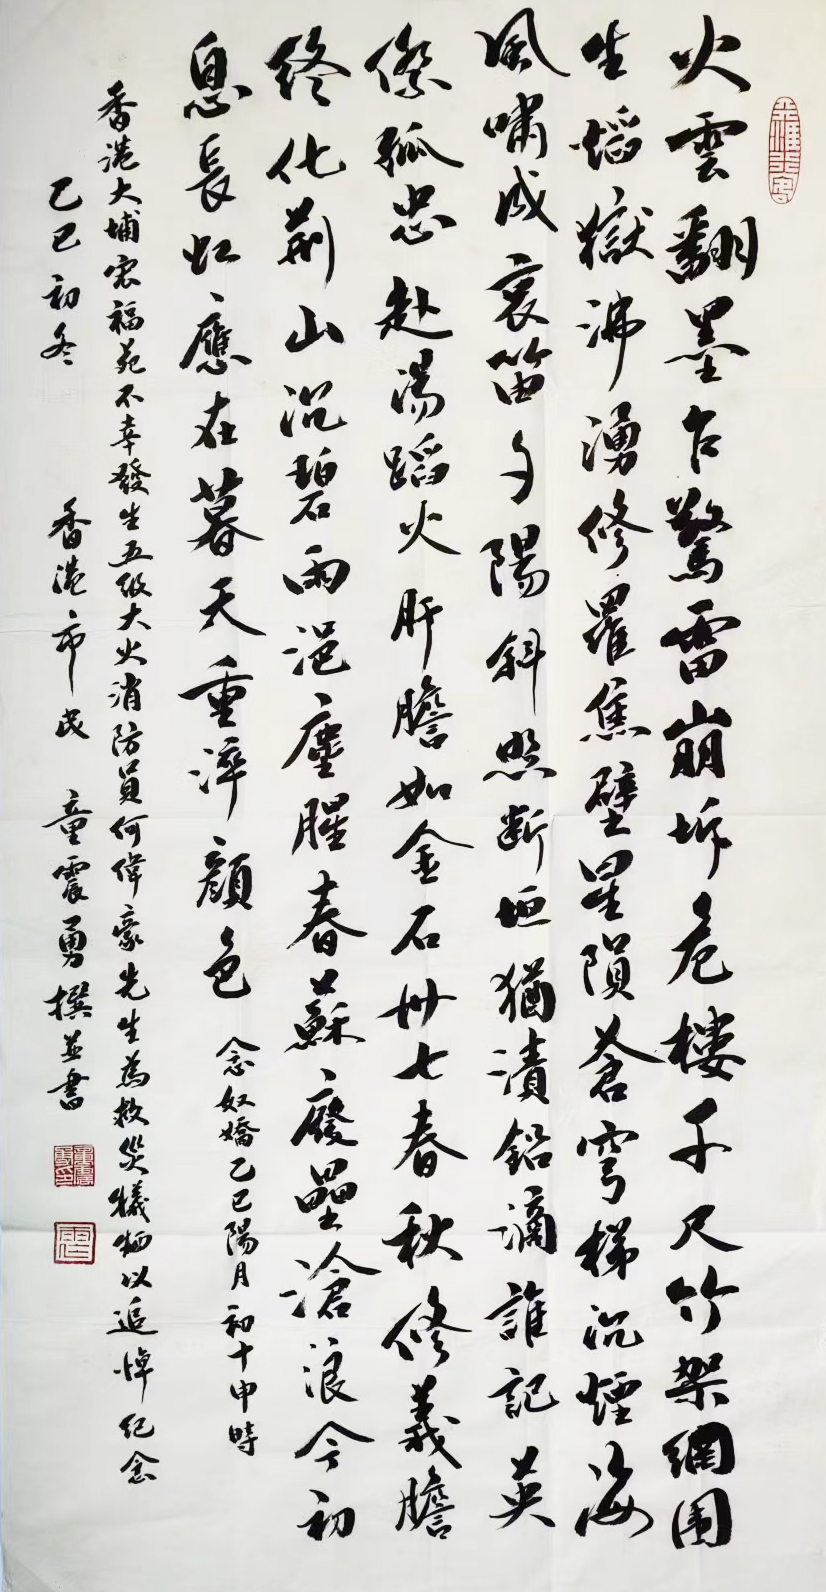 火雲翻墨乍驚雷崩坼危樓千尺竹架網圍
生焰獄沸湧修羅焦壁星隕蒼穹梯沉煙海
風嘯成哀笛夕陽斜照斷垣猶漬鉛滴誰記英
傑孤忠赴湯蹈火肝膽如金石卅七春秋修義膽
終化荊山沉碧雨浥塵腥春蘇廢壘滄浪今初
息長虹應在暮天重淬顏色
念奴嬌乙巳陽月初十申時
香港大埔宏福苑不幸發生五級大火消防員何偉豪先生為救災犧牲以追悼紀念
乙巳初冬 香港市民 童震勇撰並書